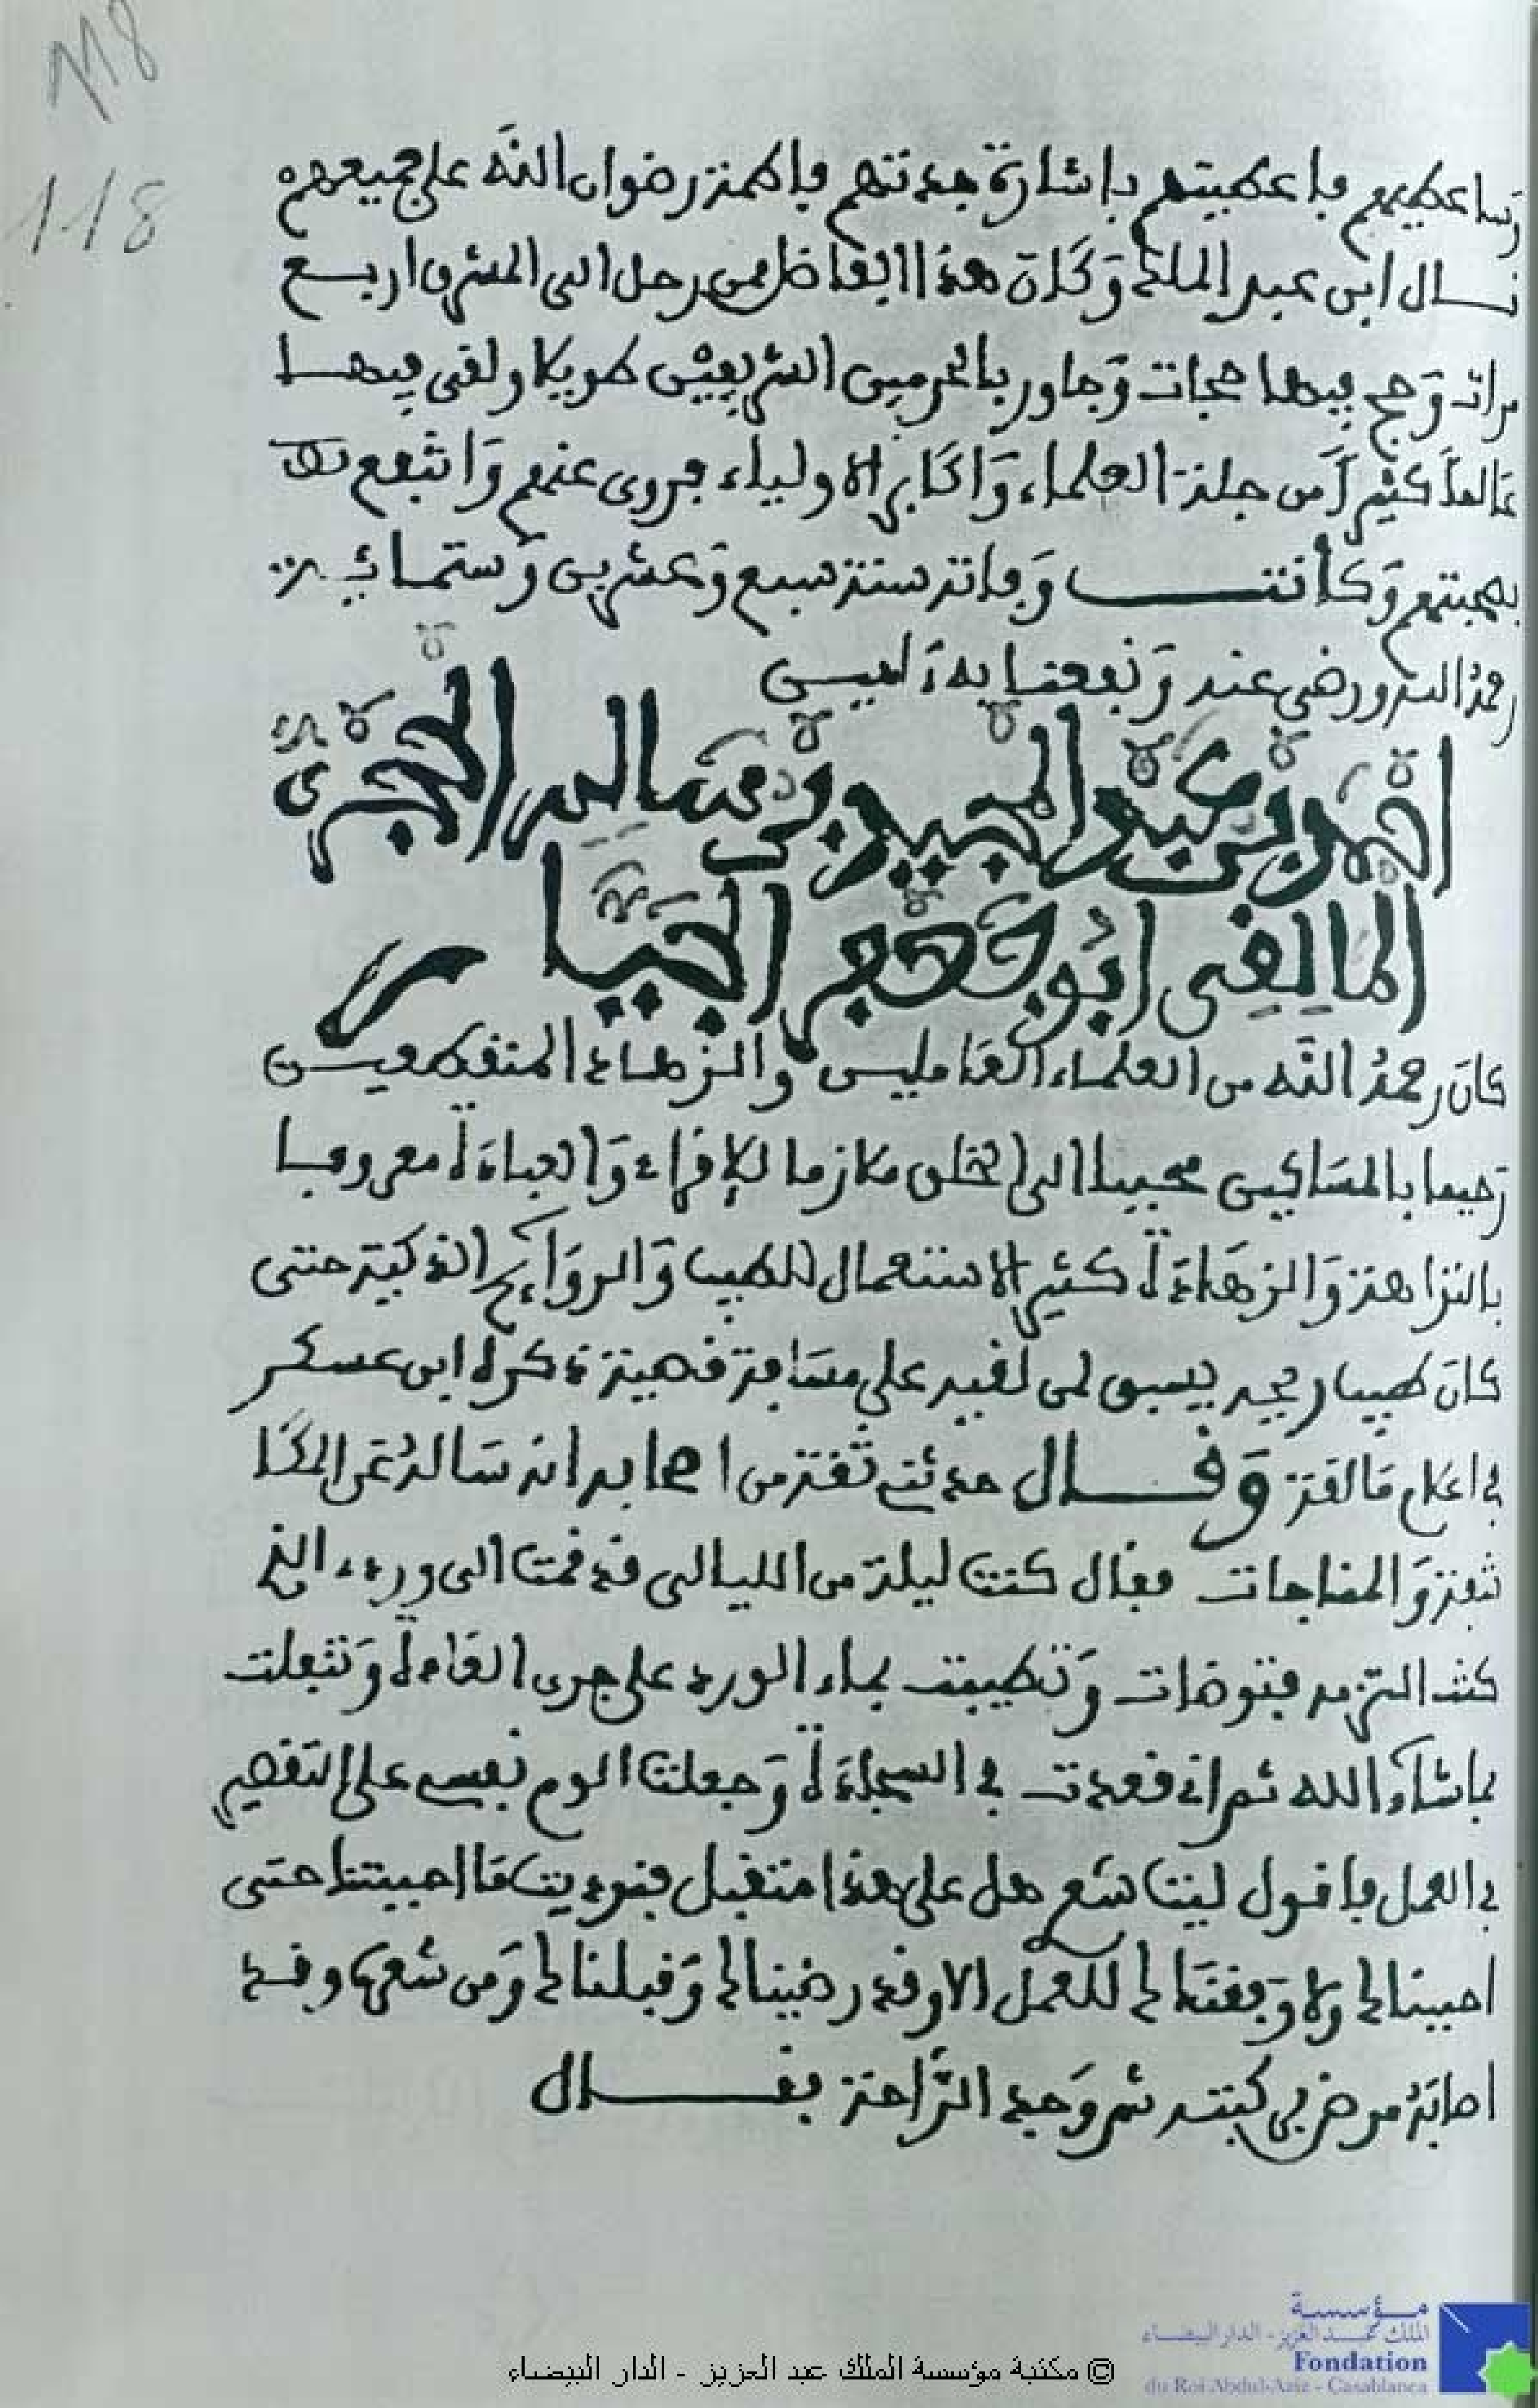 118
118
فاعطيتهم باشارة جدتهم فاطمة رضوان الله على جميعهم
قال ابن عبد الملك وكان هذا الفاضل ممن رحل الى المشرق اربع
مرات وحج فيها حجات وجاور بالحرمين الشريفين طويلا ولقي فيها
عالما كثيرا من جلة العلماء واكابر الاولياء فروى عنهم وانتفع
بصحبتهم وكانت وفاته سنة سبع وعشرين وستمائة
رحمه الله ورضي عنه ونفعنا به ءامين
احمد بن عبد المجيد بن سالم الحجري
المالقي ابو جعفر الجيار
كان رحمه الله من العلماء العاملين والزهاد المنقطعين
رحيما بالمساكين محببا الى الخلق ملازما للإقراء والعبادة معروفا
بالنزاهة والزهادة كثير الاستعمال للطيب والروائح الذكية حتى
كان طيب ريحه يسبق لمن لقيه على مسافة قصية ذكره ابن عسكر
في اعلام مالقة وقال حدثني ثقة من اصحابه انه ساله عن المكا
شفة والمناجات فقال كنت ليلة من الليالي قد قمت الى وردي الذي
كنت التزمه فتوضات وتطيبت بماء الورد على جري العادة وتنفلت
بما شاء الله ثم اني قعدت في السجادة وجعلت الوم نفسي على التقصير
في العمل فاقول ليت شعري هل على هذا متقبل فنوديت ما احببتنا حتى
احببناك ولا وفقناك للعمل الا وقد رضيناك وقبلناك ومن شعره وقد
اصابه مرض في كبته ثم وجد الراحة فقال
مؤسسة
الملك عبد العزيز - الدار البيضاء
Fondation
du Roi Abdul-Aziz - Casablanca
© مكتبة مؤسسة الملك عبد العزيز - الدار البيضاء